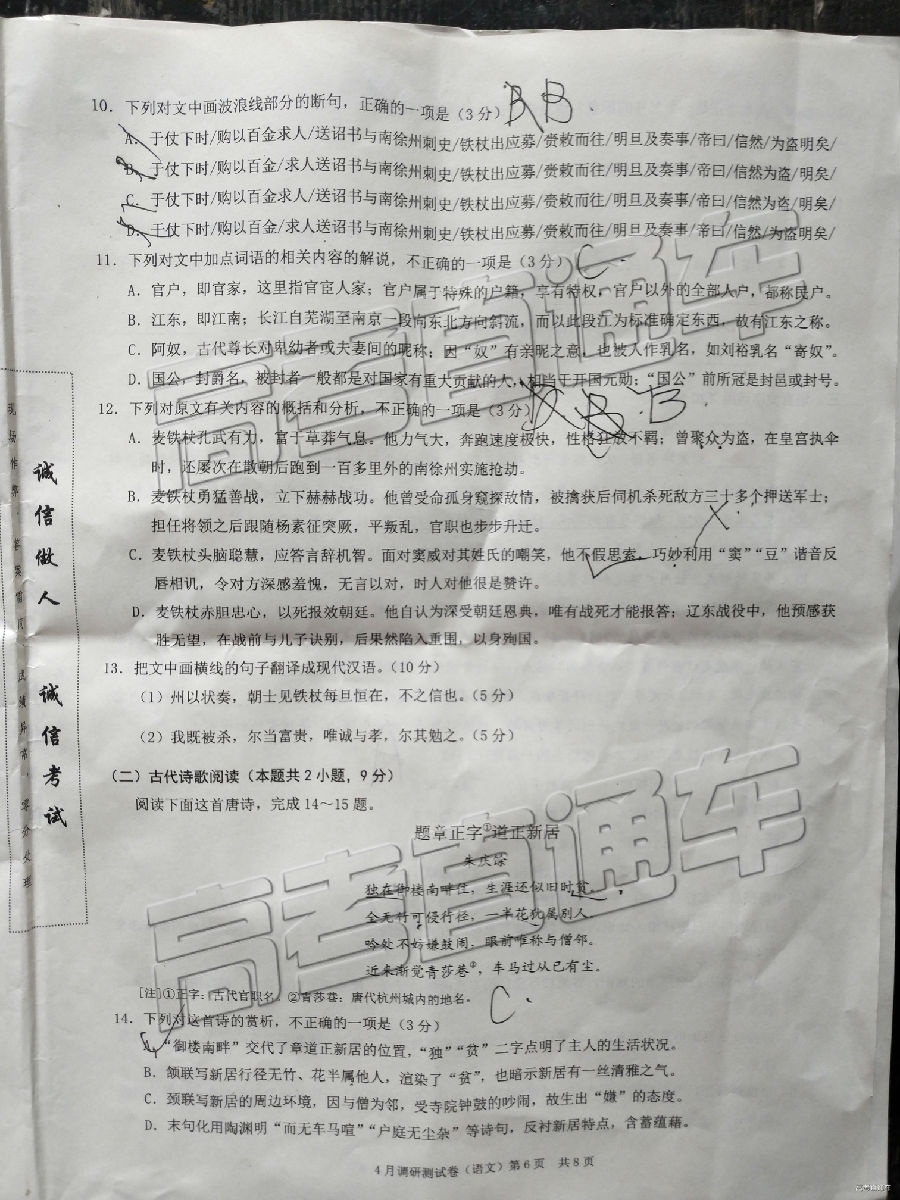 10. 下列对文中画波浪线部分的断句，正确的一项是（3分） B B
A. 于仗下时/购以百金求人/送诏书与南徐州刺史/铁杖出应募/赍敕而往/明旦及奏事/帝曰/信然/为盗明矣/
B. 于仗下时/购以百金/求人送诏书与南徐州刺史/铁杖出应募/赍敕而往/明旦及奏事/帝曰/信然为盗/明矣/
C. 于仗下时/购以百金求人/送诏书与南徐州刺史/铁杖出应募/赍敕而往/明旦及奏事/帝曰/信然为盗/明矣/
D. 于仗下时/购以百金/求人送诏书与南徐州刺史/铁杖出应募/赍敕而往/明旦及奏事/帝曰/信然/为盗明矣/
11. 下列对文中加点词语的相关内容的解说，不正确的一项是（3分） C
A. 官户，即官家，这里指官宦人家；官户属于特殊的户籍，享有特权，官户以外的全部人户，都称民户。
B. 江东，即江南；长江自芜湖至南京一段向东北方向斜流，而以此段江为标准确定东西，故有江东之称。
C. 阿奴，古代尊长对卑幼者或夫妻间的昵称；因“奴”有亲昵之意，也被人作乳名，如刘裕乳名“寄奴”。
D. 国公，封爵名，被封者一般都是对国家有重大贡献的人，相当于开国元勋；“国公”前所冠是封邑或封号。
12. 下列对原文有关内容的概括和分析，不正确的一项是（3分） B B
A. 麦铁杖孔武有力，富于草莽气息。他力气大，奔跑速度极快，性格狂放不羁；曾聚众为盗，在皇宫执伞
时，还屡次在散朝后跑到一百多里外的南徐州实施抢劫。
B. 麦铁杖勇猛善战，立下赫赫战功。他曾受命孤身窥探敌情，被擒获后伺机杀死敌方三十多个押送军士；
担任将领之后跟随杨素征突厥，平叛乱，官职也步步升迁。
C. 麦铁杖头脑聪慧，应答言辞机智。面对窦威对其姓氏的嘲笑，他不假思索，巧妙利用“窦”“豆”谐音反
唇相讥，令对方深感羞愧，无言以对，时人对他很是赞许。
D. 麦铁杖赤胆忠心，以死报效朝廷。他自认为深受朝廷恩典，唯有战死才能报答；辽东战役中，他预感获
胜无望，在战前与儿子诀别，后果然陷入重围，以身殉国。
13. 把文中画横线的句子翻译成现代汉语。（10分）
（1）州以状奏，朝士见铁杖每旦恒在，不之信也。（5分）
（2）我既被杀，尔当富贵，唯诚与孝，尔其勉之。（5分）
（二）古代诗歌阅读（本题共2小题，9分）
阅读下面这首唐诗，完成14～15题。
题章正字①道正新居
朱庆馀
独在御楼南畔住，生涯还似旧时贫。
全无竹可侵行径，一半花犹属别人。
吟处不妨嫌鼓闹，眼前唯称与僧邻。
近来渐觉青莎巷②，车马过从已有尘。
[注]①正字：古代官职名。②青莎巷：唐代杭州城内的地名。
14. 下列对这首诗的赏析，不正确的一项是（3分） C
A. “御楼南畔”交代了章道正新居的位置，“独”“贫”二字点明了主人的生活状况。
B. 颔联写新居行径无竹、花半属他人，渲染了“贫”，也暗示新居有一丝清雅之气。
C. 颈联写新居的周边环境，因与僧为邻，受寺院钟鼓的吵闹，故生出“嫌”的态度。
D. 末句化用陶渊明“而无车马喧”“户庭无尘杂”等诗句，反衬新居特点，含蓄蕴藉。
4月调研测试卷（语文）第6页 共8页
诚信做人 诚信考试
高考直通车
高考直通车